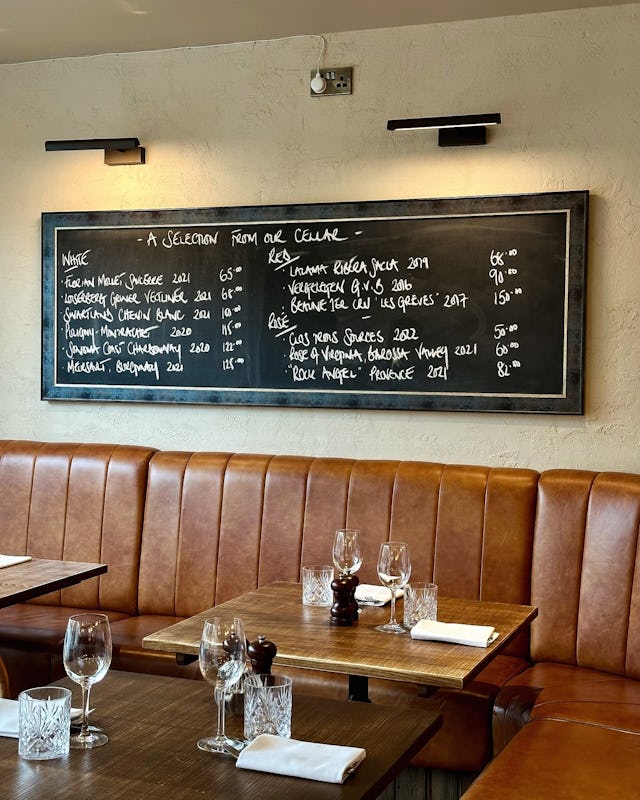 - A SELECTION FROM OUR CELLAR -
WHITE
FLORIAN MOLLET SANCERRE 2021 65.00
LOSERBERG GRUNER VELTLINER 2021 68.00
SWARTLAND CHENIN BLANC 2021
PULIGNY-MONTRACHET 2020 115.00
SONOMA COAST CHARDONNAY 2020 122.00
MEURSAULT, BURGUNDY 2021 125.00
RED
LALAMA RIBERA SACRA 2019 68.00
VERGELEGEN G.V.B 2016 90.00
BEAUNE 1ER CRU 'LES GREVES' 2017 150.00
ROSE
CLOS TROIS SOURCES 2022 50.00
ROSE OF VIRGINIA, BAROSSA VALLEY 2021 60.00
"ROCK ANGEL" PROVENCE 2021 82.00